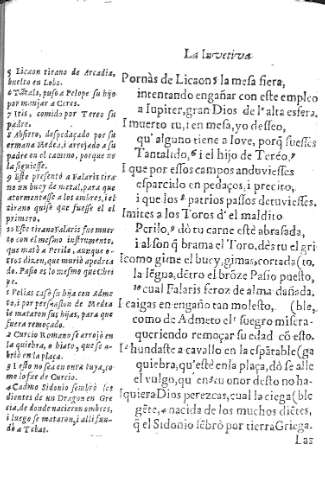 La Invetiva
5 Licaon tirano de Arcadia,
buelto en Lobo.
6 Tãtalo, puso a Pelope su hijo
por manjar a Ceres.
7 Itis, comido por Tereo su
padre.
8 Absirto, despedaçado por su
ermana Medea, i arrojado a su
padre en el camino, porque no
la siguiesse.
9 Este presentò a Falaris tira-
no un bucy de metal, para que
atormentasse a los ombres, i el
tirano quiso que fuesse el el
primero.
10 Este tirano Falaris fue muer-
to con el mesmo instrumento,
que matò a Perilo, aunque o-
tros dizen, que muriò apedrea
do. Pasio es lo mesmo que Chri-
ge.
1 Pelias casò su hija con Adme-
to, i por persuasion de Medea
le mataron sus hijas, para que
fuera remoçado.
2 Curcio Romano se arrojò en
la quiebra, o hiato, que se a-
briò en la plaça.
3 I esto no sea en onra tuya, co-
mo lo fue de Curcio.
4 Cadmo Sidonio sembrò los
dientes de un Dragon en Gre-
cia, de donde nacieron ombres,
i luego se mataron, i alli fun-
dò a Tebas.
Pornàs de Licaon 5 la mesa fiera,
intentando engañar con este empleo
a Iupiter, gran Dios de l'alta esfera.
I muerto tu, i en mesa, yo desseo,
qu'alguno tiene a Iove, porq̃ fuesses
Tantalido, 6 i el hijo de Terèo. 7
I que por essos campos anduviesses
esparcido en pedaços, i precito,
i que los 8 patrios passos detuviesses.
Imites a los Toros d'el maldito
Perilo, 9 dò tu carne estè abrasada,
i al son q̃ brama el Toro, dès tu el gri
I como gime el bucy, gimas, cortada (to,
la lẽgua, dẽtro el brõze Pasio puesto,
10 cual Falaris feroz de alma dañada.
I caigas en engaño tan molesto, (ble,
como de Admeto el 1 suegro misera-
queriendo remoçar su edad cõ esto.
I 2 hundaste a cavallo en la espãtable (ga
quiebra, qu'estè en la plaça, dò se alle
el vulgo, qu' en tu onor desto no ha-
I quiera Dios perezcas, cual la ciega (ble
gẽte, 4 nacida de los muchos diẽtes,
q̃ el Sidonio sẽbrò por tierra Griega.
Las